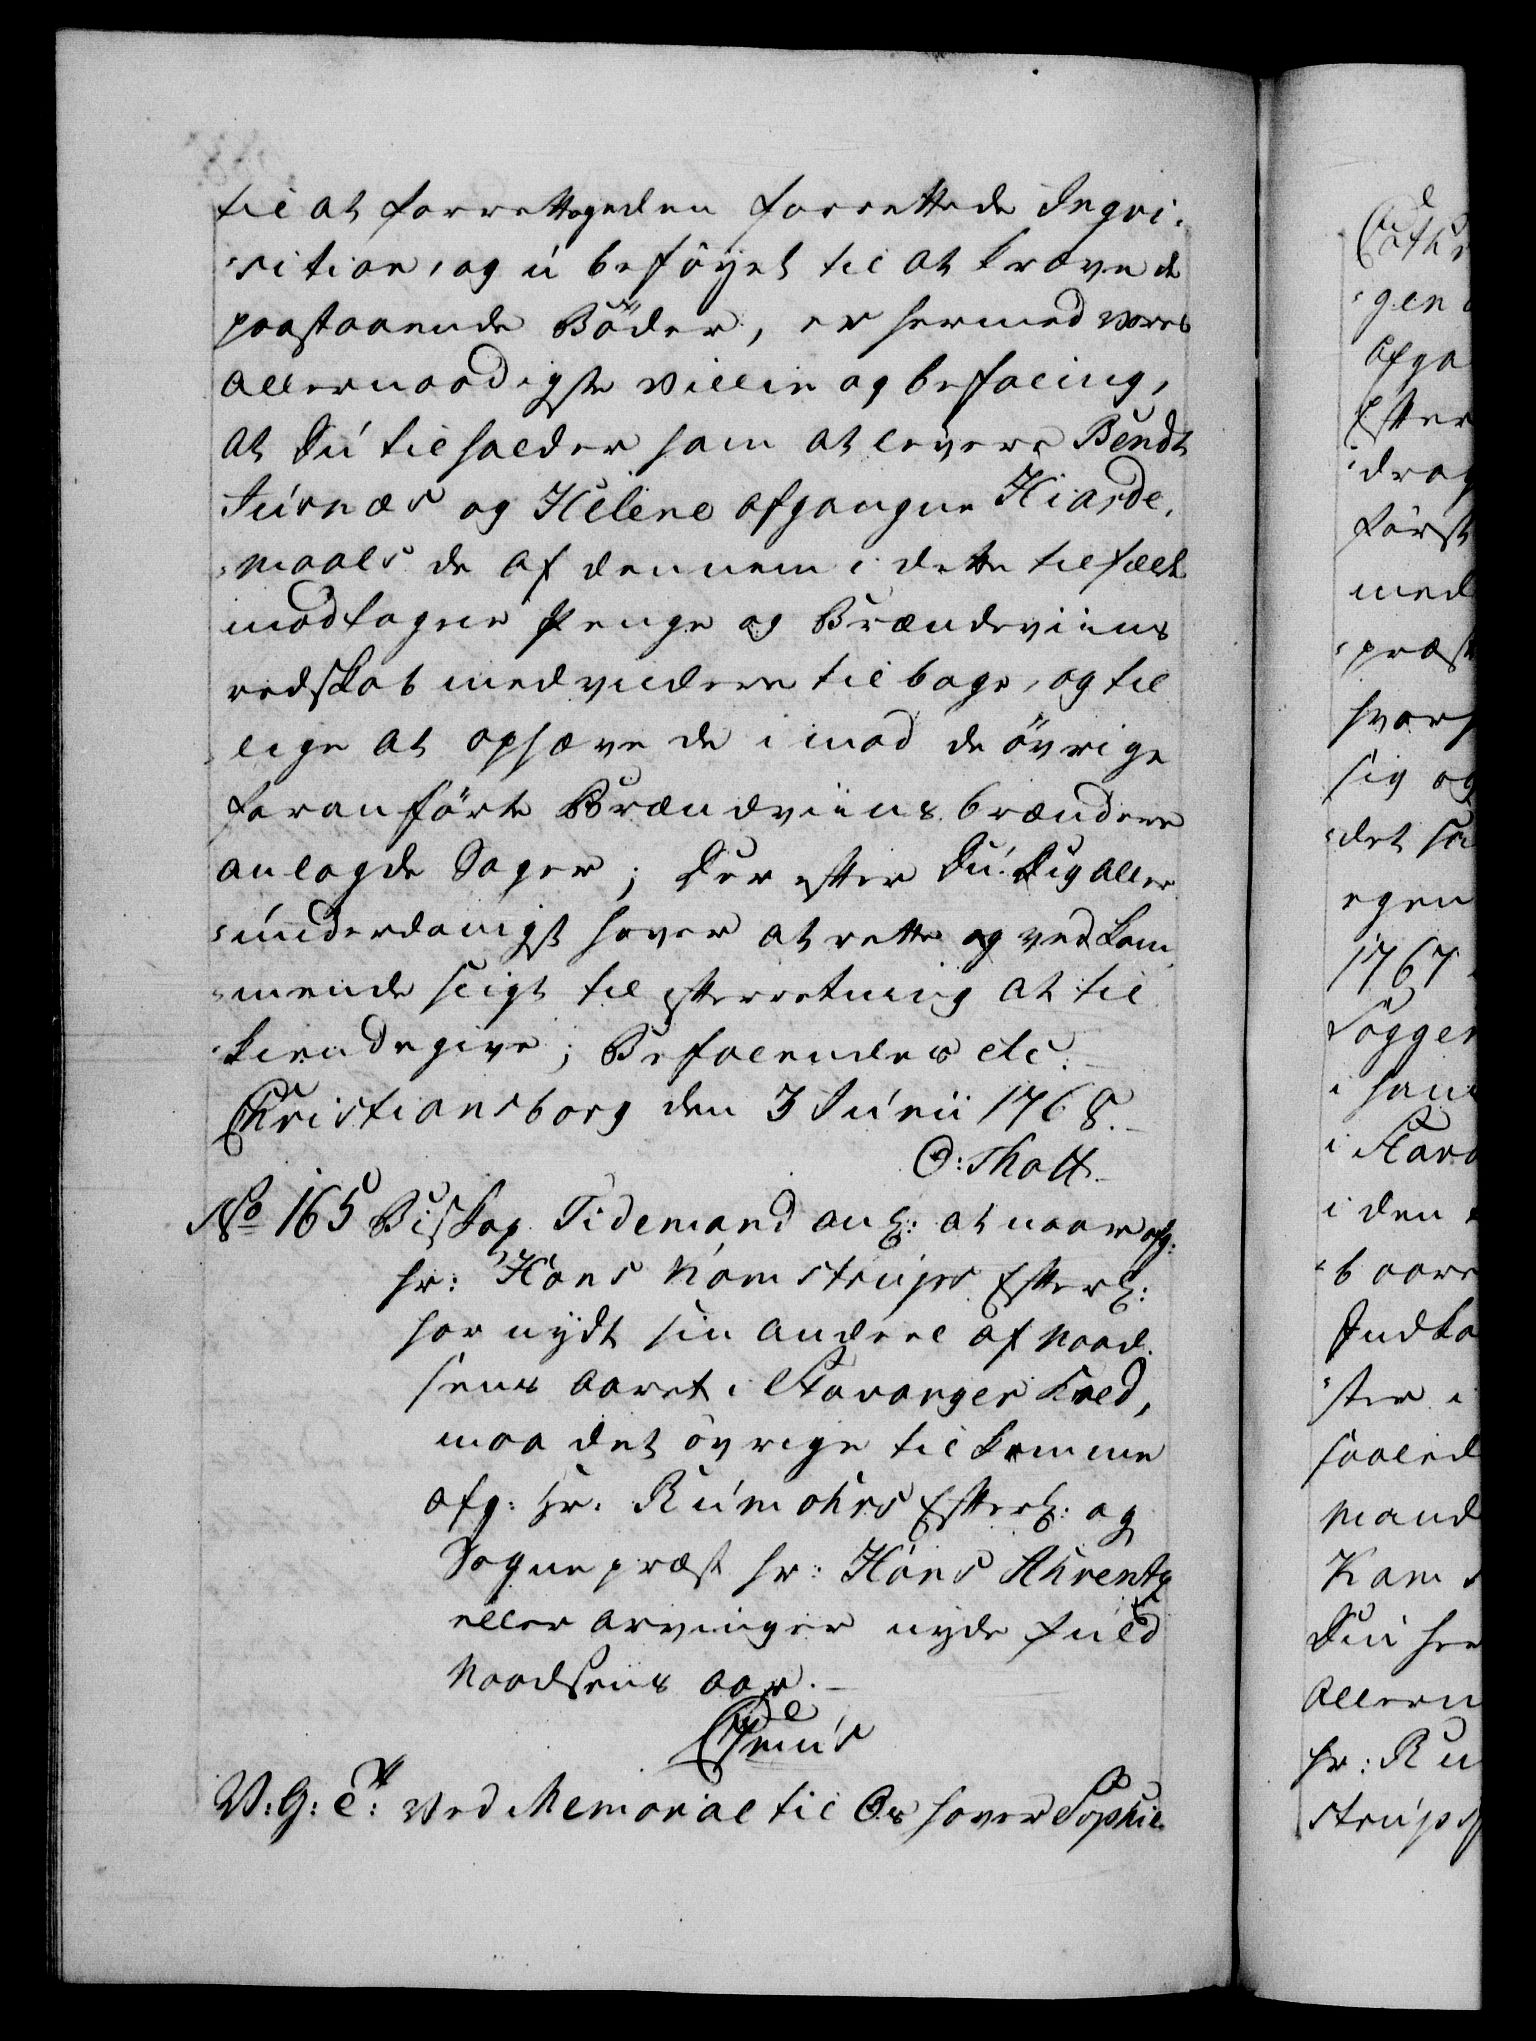 til at forrettageden forrettede Inqvi-
-sition, og u beföyet til at kræve de
paastaaende Böder, er hermed Vores
allernaadigste villie og befaling,
at Du tilholder ham at levere Bendt
Jurnæs og Helene afgangne Hiorde-
-maals de af dennem i dette tilfælde
modtagne Penge og Brændeviins
redskab medvidere tilbage, og til
lige at ophæve de imod de övrige
foranförte Brændeviins brændere
anlagde Sager; Der efter Du Dig aller
-underdanigst haver at rette og vedkom
-mende sligt til efterretning at til
-kiendegive; Befalendes etc:
Christiansborg den 3 Junii 1768.
O: Thott
No 165 Biskop Tidemand anl: at naar afg:
hr: Hans Kamstrups Efterl:
har nydt sin andeel af Naad-
sens aaret i Stavanger Kald,
maa det övrige tilkomme
afg: Hr. Rumohrs Efterl: og
Sogne præst hr: Hans Ahrentz
eller arvinger nyde fuld
Naadsens aar.
V: G: et: Ved Memorial til Os haver Sophie
Cath
-gen
afga
Efter
-drag
först
med
-præst
hvor
sig og
-det
egen
1767
Logger
i ham
i Stava
i den
-b aare
Indko
-ster i
saaled
mand
Kam
Du
allern
hr: Ru
strups